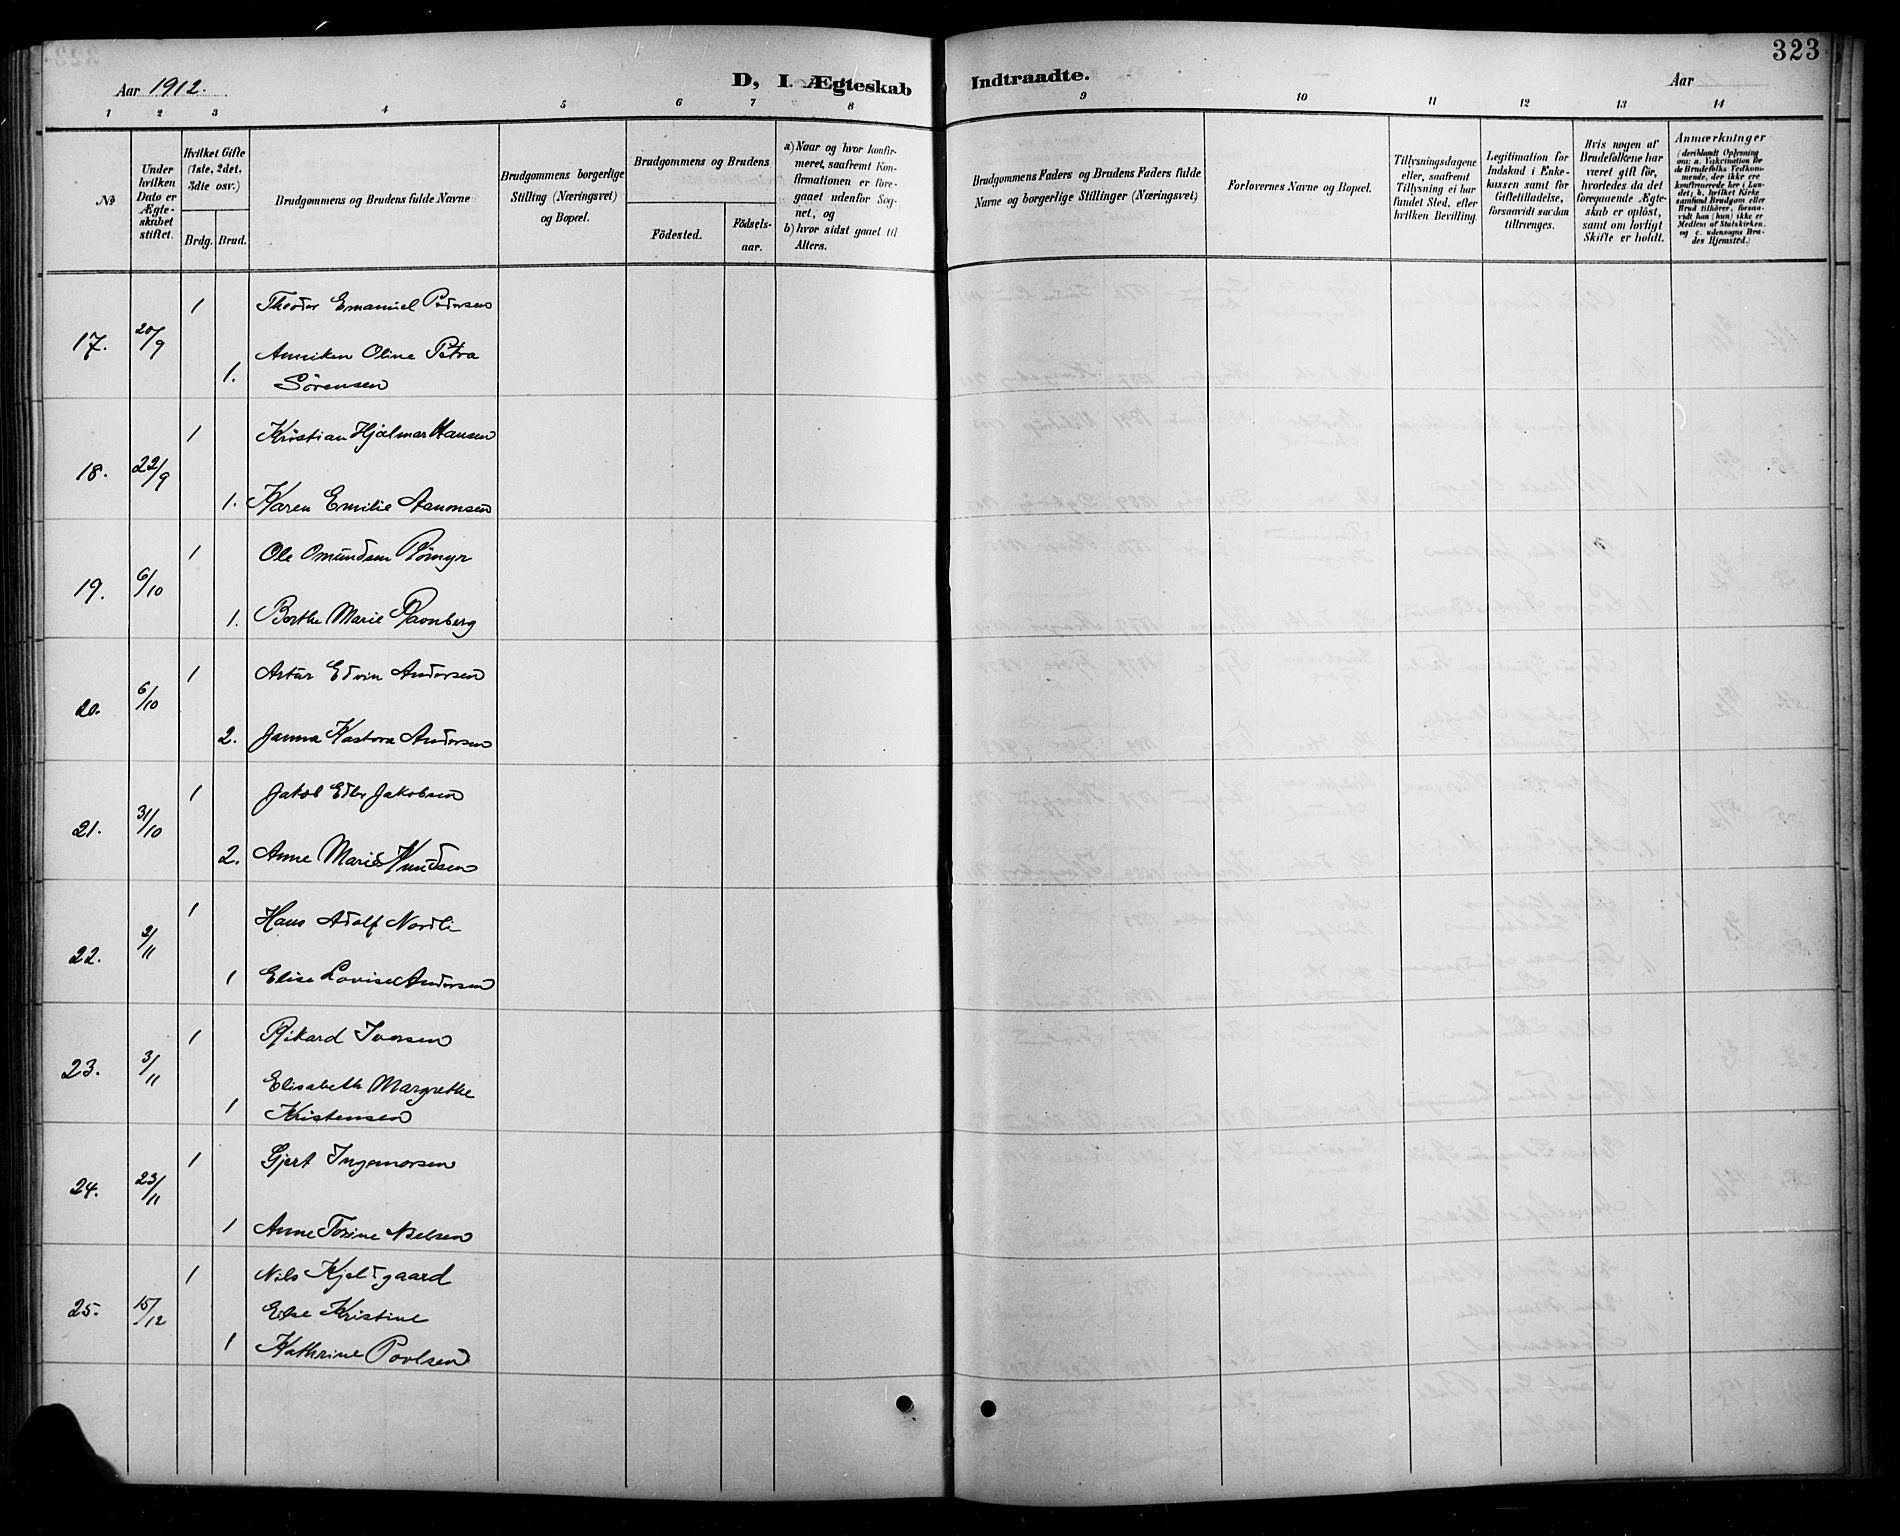 323
Aar 1912.
D, I. Ægteskab Indtraadte.
Aar
1 2 3 4 5 6 7 8 9 10 11 12 13 14
No
Under hvilken Dato er Ægteskabet stiftet.
Hvilket Gifte (1ste, 2det, 3dte osv.)
Brdg. Brud.
Brudgommens og Brudens fulde Navne
Brudgommens borgerlige Stilling (Næringsvei) og Bopæl.
Brudgommens og Brudens
Födested.
Födselsaar.
a) Naar og hvor konfirmeret, saafremt Konfirmationen er foregaaet udenfor Sognet, og
b) hvor sidst gaaet til Alters.
Brudgommens Faders og Brudens Faders fulde Navne og borgerlige Stillinger (Næringsvei)
Forlovernes Navne og Bopæl.
Tillysningsdagene eller, saafremt Tillysning ei har fundet Sted, efter hvilken Bevilling.
Legitimation for Indskud i Enkekassen samt for Giftetilladelse, forsaavidt saadan tiltrænges.
Hvis nogen af Brudefolkene har været gift för, hvorledes da det foregaaende Ægteskab er oplöst, samt om lovligt Skifte er holdt.
Anmærkninger
(deriblandt Oplysning om: a. Vakcination for de Brudefolks Vedkommende, der ikke ere konfirmerede her i Landet; b. hvilket Kirkesamfund Brudgom eller Brud tilhörer, forsaavidt han (hun) ikke er Medlem af Statskirken, og c. udensogns Brudes Hjemsted.)
17. 20/9 1 Theodor Emanuel Pedersen
1. Anniken Oline Petra
Sörensen
18. 22/9 1 Kristian Hjalmar Hansen
1. Karen Emilie Aanonsen
19. 6/10 1 Ole Omundsen Römyr
1. Berthe Marie Ravnberg
20. 6/10 1 Artur Edvin Andersen
2. Janna Kastora Andersen
21. 31/10 1 Jakob Edler Jakobsen
2. Anne Marie Knudsen
22. 2/11 1 Hans Adolf Nordli
1 Elise Lovise Andersen
23. 3/11 1 Rikard Iversen
Elisabeth Margrethe
1 Kristensen
24. 23/11 1 Gjert Ingemorsen
1 Anne Torine Nielsen
25. 15/12 1 Nils Kjeldgaard
Else Kristine
1 Kathrine Povlsen